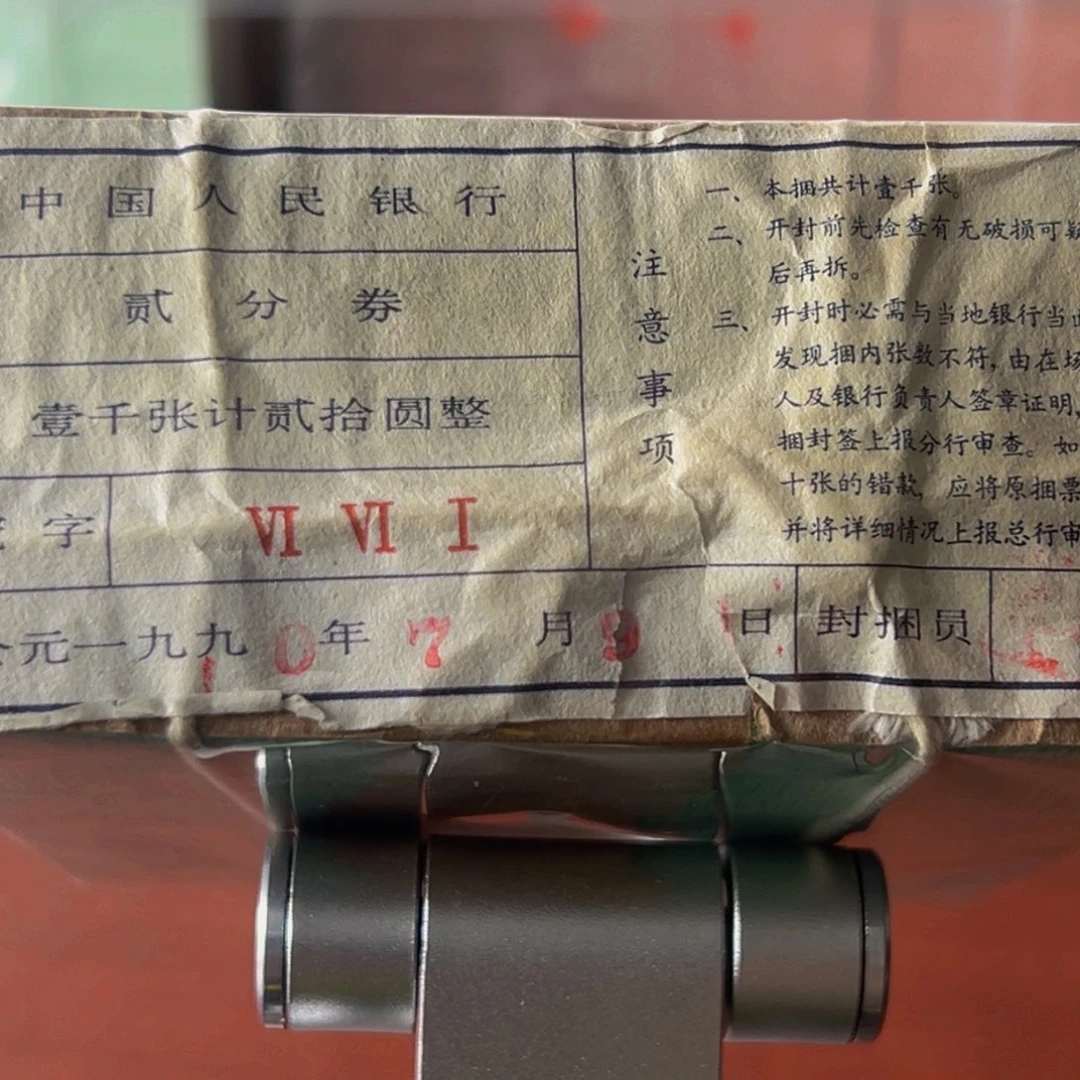 中国人民银行
贰分券
壹千张计贰拾圆整
字 VI VI I
元一九九0年7月9日 封捆员
注意事项
一、本捆共计壹千张。
二、开封前先检查有无破损可疑
后再拆。
三、开封时必需与当地银行当
发现捆内张数不符,由在场
人及银行负责人签章证明,
捆封签上报分行审查。如
十张的错款,应将原捆票
并将详细情况上报总行审